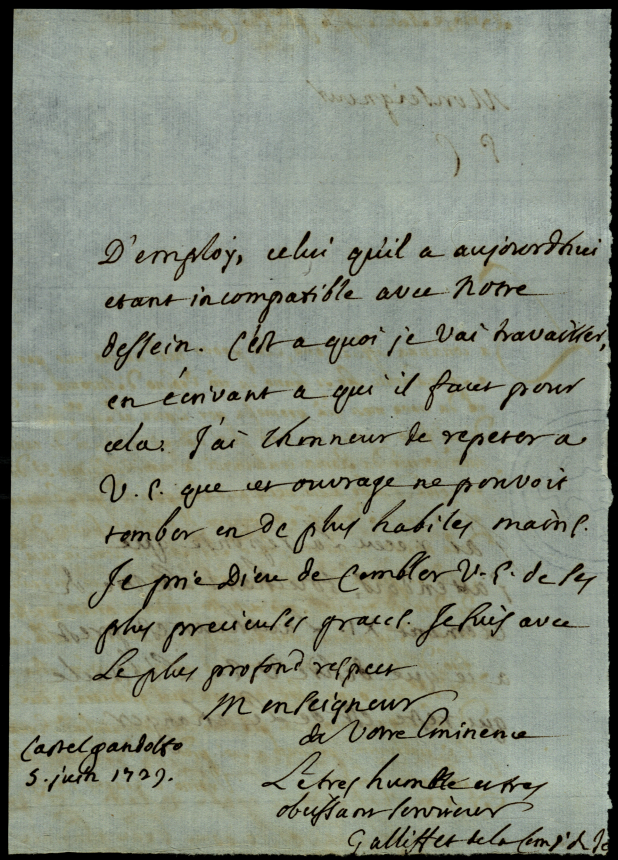 D'employ, celui qu'il a aujourdhui
etant incompatible avec Notre
dessein. C'est a quoi je vai travailler,
en écrivant a qui il faut pour
cela. J'ai lhonneur de repeter a
V. E. que cet ouvrage ne pouvoit
tomber en de plus habiles mains.
Je prie Dieu de Combler V. E. de ses
plus precieuses graces. Je suis avec
Le plus profond respect
Monseigneur
de Votre Eminence
Castelgandolfo
5. juin 1729.
Le tres humble et tres
obeissant serviteur
Galliffet de la Comp.